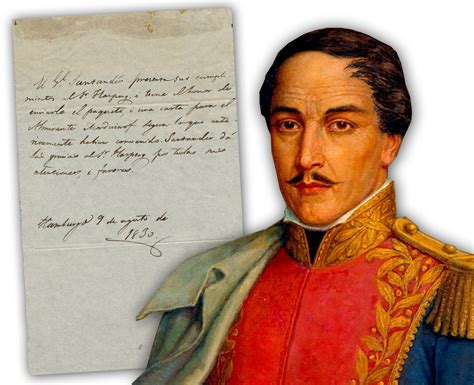 El Gl. Santander presenta sus cumpli
mientos al Sr. Harperg, i tiene el honor de
enviarle el paquete i una carta para el
Almirante segun lo que ante
riormente habian convenido. Santander da
las gracias al Sr. Harperg por todas sus
atenciones i favores.
Hamburgo 9 de agosto de
1830.